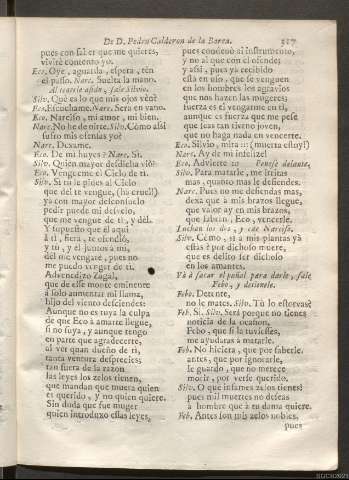 De D. Pedro Calderon de la Barca. 327
pues con saber que me quieres,
vivirè contento yo.
Eco. Oye, aguarda, espera, tèn
el passo. Narc. Suelta la mano.
Al tenerle asido, sale Silvio.
Silv. Què es lo que mis ojos ven?
Eco. Escuchame. Narc. Serà en vano.
Eco. Narciso, mi amor, mi bien.
Narc. No he de oirte. Silv. Cómo assi
sufro mis ofensas yo?
Narc. Dexame.
Eco. De mi huyes? Narc. Si.
Silv. Quien mayor desdicha viò?
Eco. Vengueme el Cielo de ti.
Silv. Si tu le pides al Cielo
que del te vengue, (ha cruel!)
yà con mayor desconsuelo
pedir puede mi desvelo,
que me vengue de ti, y dèl.
Y supuesto que èl aqui
à ti, fiera, te ofendiò,
y tu, y èl juntos à mi,
dèl me vengarè, pues no
me puedo vengar de ti.
Advenedizo Zagal,
que de esse monte eminente
à solo aumentar mi llama,
hijo del viento desciendes:
Aunque no es tuya la culpa
de que Eco à amarte llegue,
si no suya, y aunque tengo
en parte que agradecerte,
al vèr quan dueño de ti,
tanta ventura desprecies;
tan fuera de la razon
las leyes los zelos tienen,
que mandan que muera quien
es querido, y no quien quiere.
Sin duda que fue muger
quien introduxo essas leyes,
pues condenò al instrumento,
y no al que con el ofendes
y assi, pues yà recibido
està en uso, que se venguen
en los hombres los agravios
que nos hazen las mugeres;
fuerza es el vengarme en ti,
aunque es fuerza que me pese
que seas tan tierno joven,
que no haga nada en vencerte.
Eco. Silvio, mira :::: (muerta estoy!)
Narc. Ay de mi infelize!
Eco. Advierte :::: Ponese delante.
Silv. Para matarle, me irritas
mas, quanto mas le defiendes.
Narc. Pues no me defiendas mas,
dexa que à mis brazos llegue,
que valor ay en mis brazos,
que sabràn, Eco, vencerle.
Luchan los dos, y cae Narciso.
Silv. Còmo, si à mis plantas yà
estàs? por dichoso muere,
que es delito ser dichoso
en los amantes.
Và à sacar el puñal para darle, sale
Febo, y detienele.
Febo. Detente,
no le mates. Silvo. Tù lo estorvas?
Feb. Si. Silv. Serà porque no tienes
noticia de la ocasion,
Febo, que si la tuvieses,
me ayudàras à matarle.
Feb. No hiciera, que por saberle,
antes, que por ignorarle,
le guardo, que no merece
morir, por verse querido.
Silv. O que infames zelos tienes!
pues mil muertes no deseas
à hombre que à tu dama quiere.
Feb. Antes son mis zelos nobles,
pues